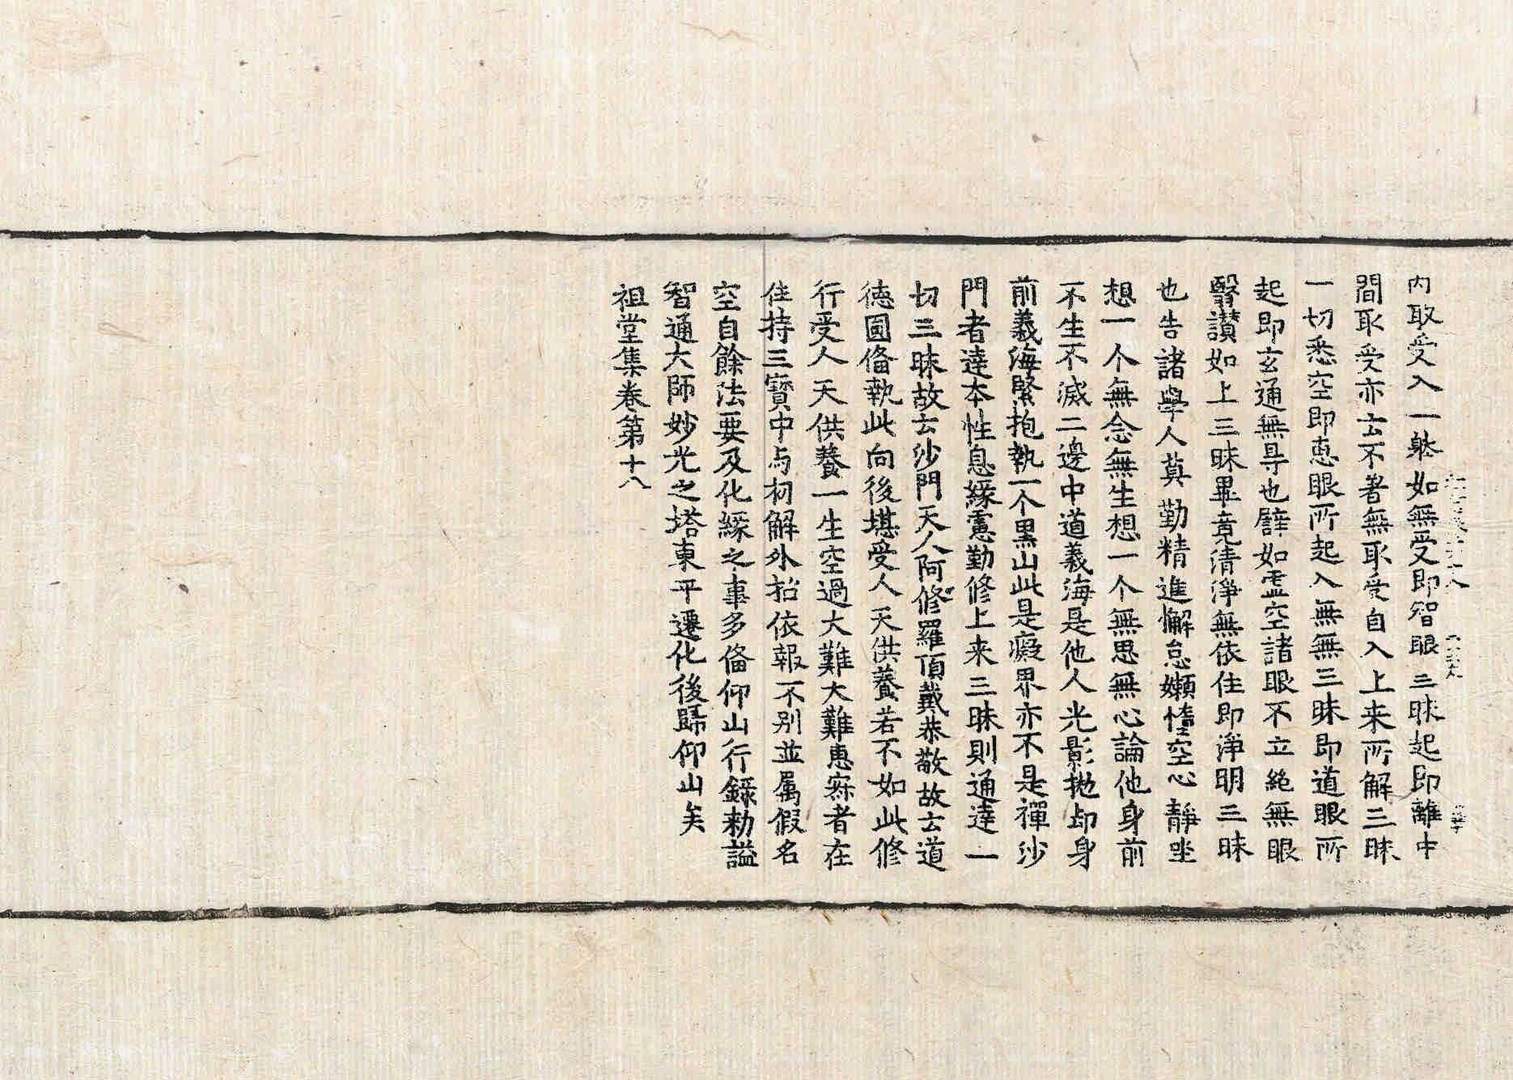 内取受入一躰如無受即智眼三昧起即離中
間取受亦云不著無取受自入上来所解三昧
一切悉空即惠眼所起入無無三昧即道眼所
起即玄通無㝵也譬如虚空諸眼不立絶無眼
翳讃如上三昧畢竟清淨無依住即淨明三昧
也告諸學人莫勤精進懈怠嬾惰空心靜坐
想一个無念無生想一个無思無心論他身前
不生不滅二邊中道義海是他人光影抛却身
前義海緊抱執一个黒山此是癡界亦不是禪沙
門者達本性息緣慮勤修上来三昧則通達一
切三昧故云沙門天人阿修羅頂戴恭敬故云道
德圓俻執此向後堪受人天供養若不如此修
行受人天供養一生空過大難大難惠寂者在
住持三寳中与柯解外招依報不別並属假名
空自餘法要及化緣之事多俻仰山行録勅謚
智通大師妙光之塔東平遷化後歸仰山矣
祖堂集卷第十八